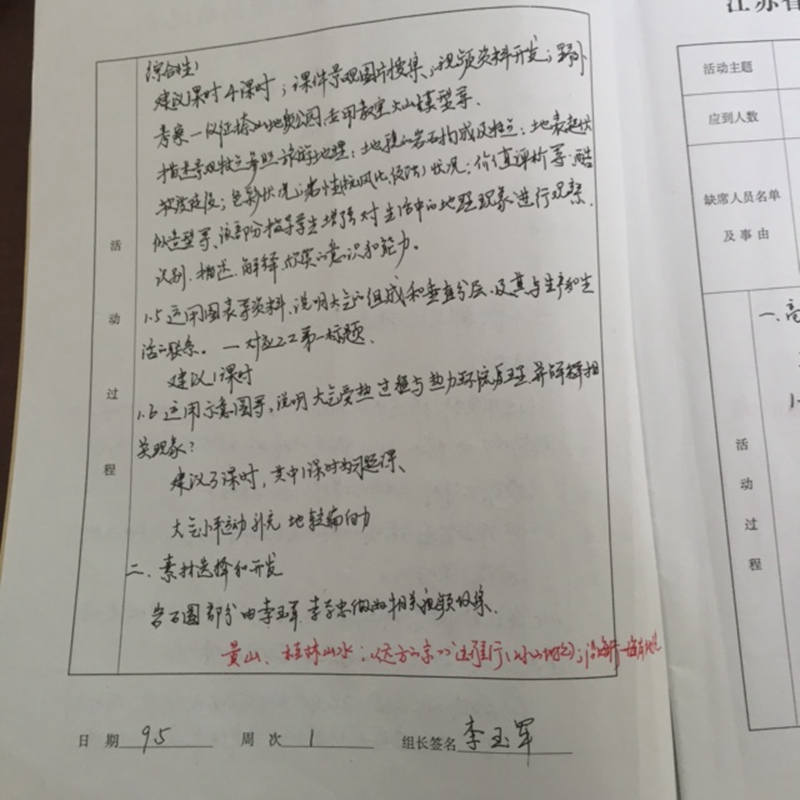 综合性：
建议课时4课时；课件景观图片搜集；视频资料开发；野外
考察一仪征捺山地质公园，应用教室火山模型等。
描述景观特点参照旅游地理：地貌的岩石构成及特点；地表起伏
坡度陡缓；色彩状况；岩性抗风化、侵蚀）状况；价值评价等；酷
似造型等，该部分指导学生增强对生活中的地理现象进行观察、
识别、描述、解释、欣赏的意识和能力。
1.5 运用图表等资料，说明大气的组成和垂直分层，及其与生产和生
活的联系。一对应2.2第一标题、
建议1课时
1.6 运用示意图等，说明大气受热过程与热力环流原理，并解释相
关现象？
建议3课时，其中1课时为习题课、
大气水平运动补充 地转偏向力
二、素材选择和开发
岩石圈部分由李玉军 李
相关视频收集、
黄山、桂林山水：《远方的家》
活动过程
日期 9.5 周次 1 组长签名 李玉军
江苏省
活动主题
应到人数
缺席人员名单
及事由
一、高
活动过程